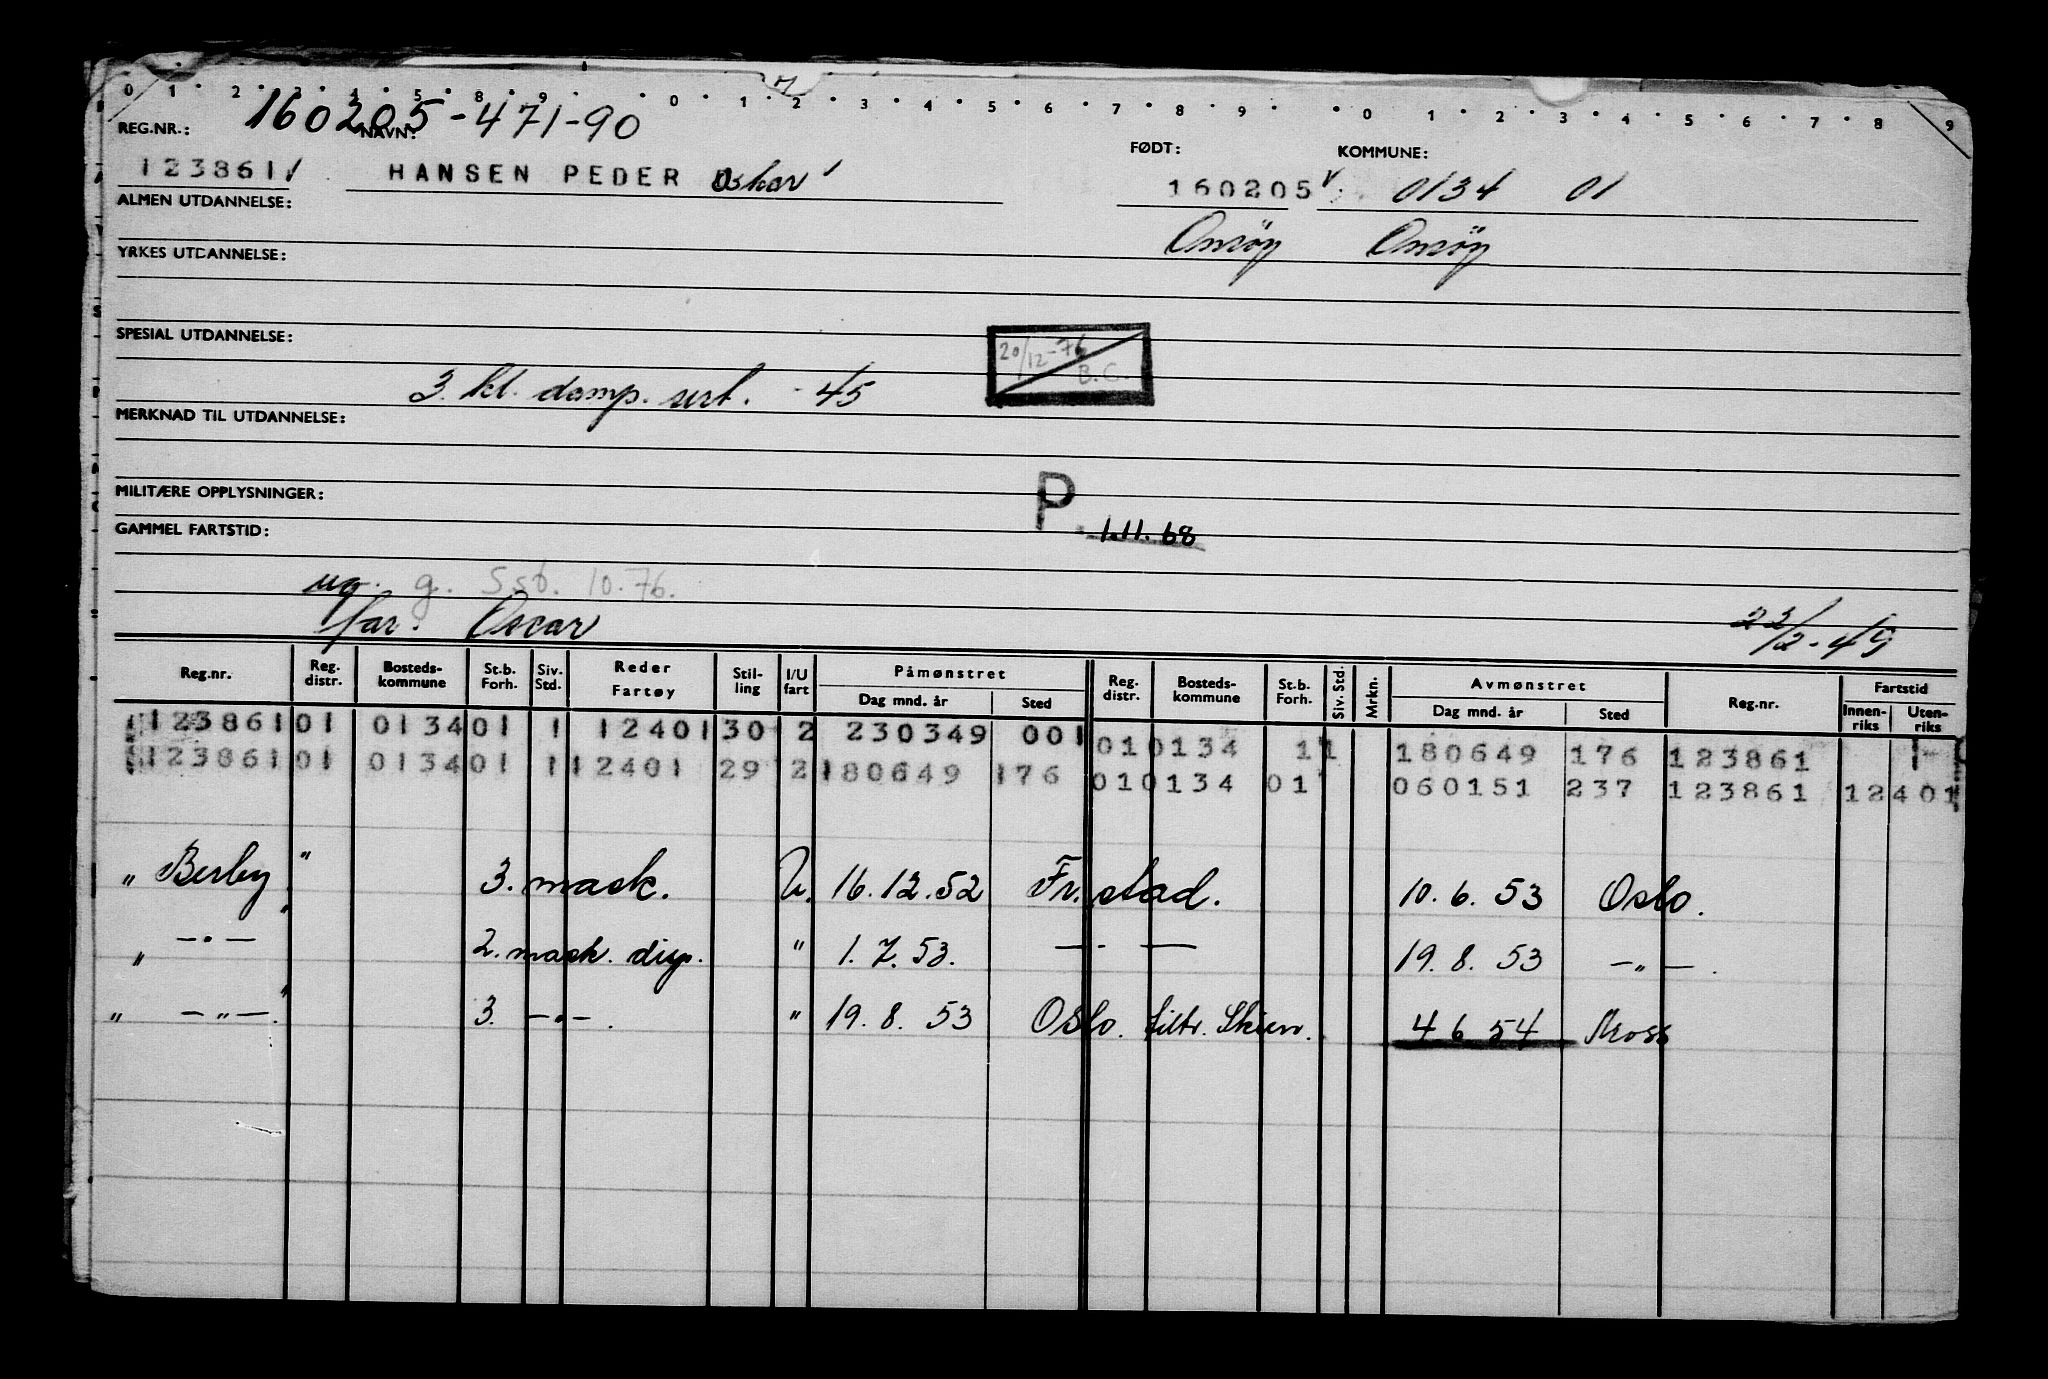 0 1 2 3 4 5 8 9 0 1 2 3 4 5 6 7 8 9 0 1 2 3 4 5 6 7 8 9
REG.NR.: 160205-471-90 NAVN: FØDT: KOMMUNE:
123861 HANSEN PEDER Oskar 160205 0134 01
ALMEN UTDANNELSE:
Onsöy Onsöy
YRKES UTDANNELSE:
SPESIAL UTDANNELSE:
20/12-76
B.C.
3. kl. damp. sert. -45
MERKNAD TIL UTDANNELSE:
MILITÆRE OPPLYSNINGER:
P. 1.11.68
GAMMEL FARTSTID:
ug. g. Ssb. 10.76.
far. Oscar 22/2-49
Reg.nr. Reg. distr. Bosteds-kommune St.b. Forh. Siv. Std. Reder Fartøy Stil-ling I/U fart Påmønstret Dag mnd. år Sted Reg. distr. Bosteds-kommune St.b. Forh. Siv. Std. Mrkn. Avmønstret Dag mnd. år Sted Reg.nr. Fartstid Innen-riks Uten-riks
123861 01 0134 01 1 12401 30 2 230349 001 01 0134 1 1 180649 176 123861 1
123861 01 0134 01 1 12401 29 2 180649 176 01 0134 01 060151 237 123861 12401
" Berby " 3. mask. U. 16.12.52 Fr.stad. 10.6.53 Oslo.
" -.- " 2. mask. disp. " 1.7.53. -.- 19.8.53 -"-.
" -"-. " 3. -.-. " 19.8.53 Oslo. tiltr. Skien. 4 6 54 Moss